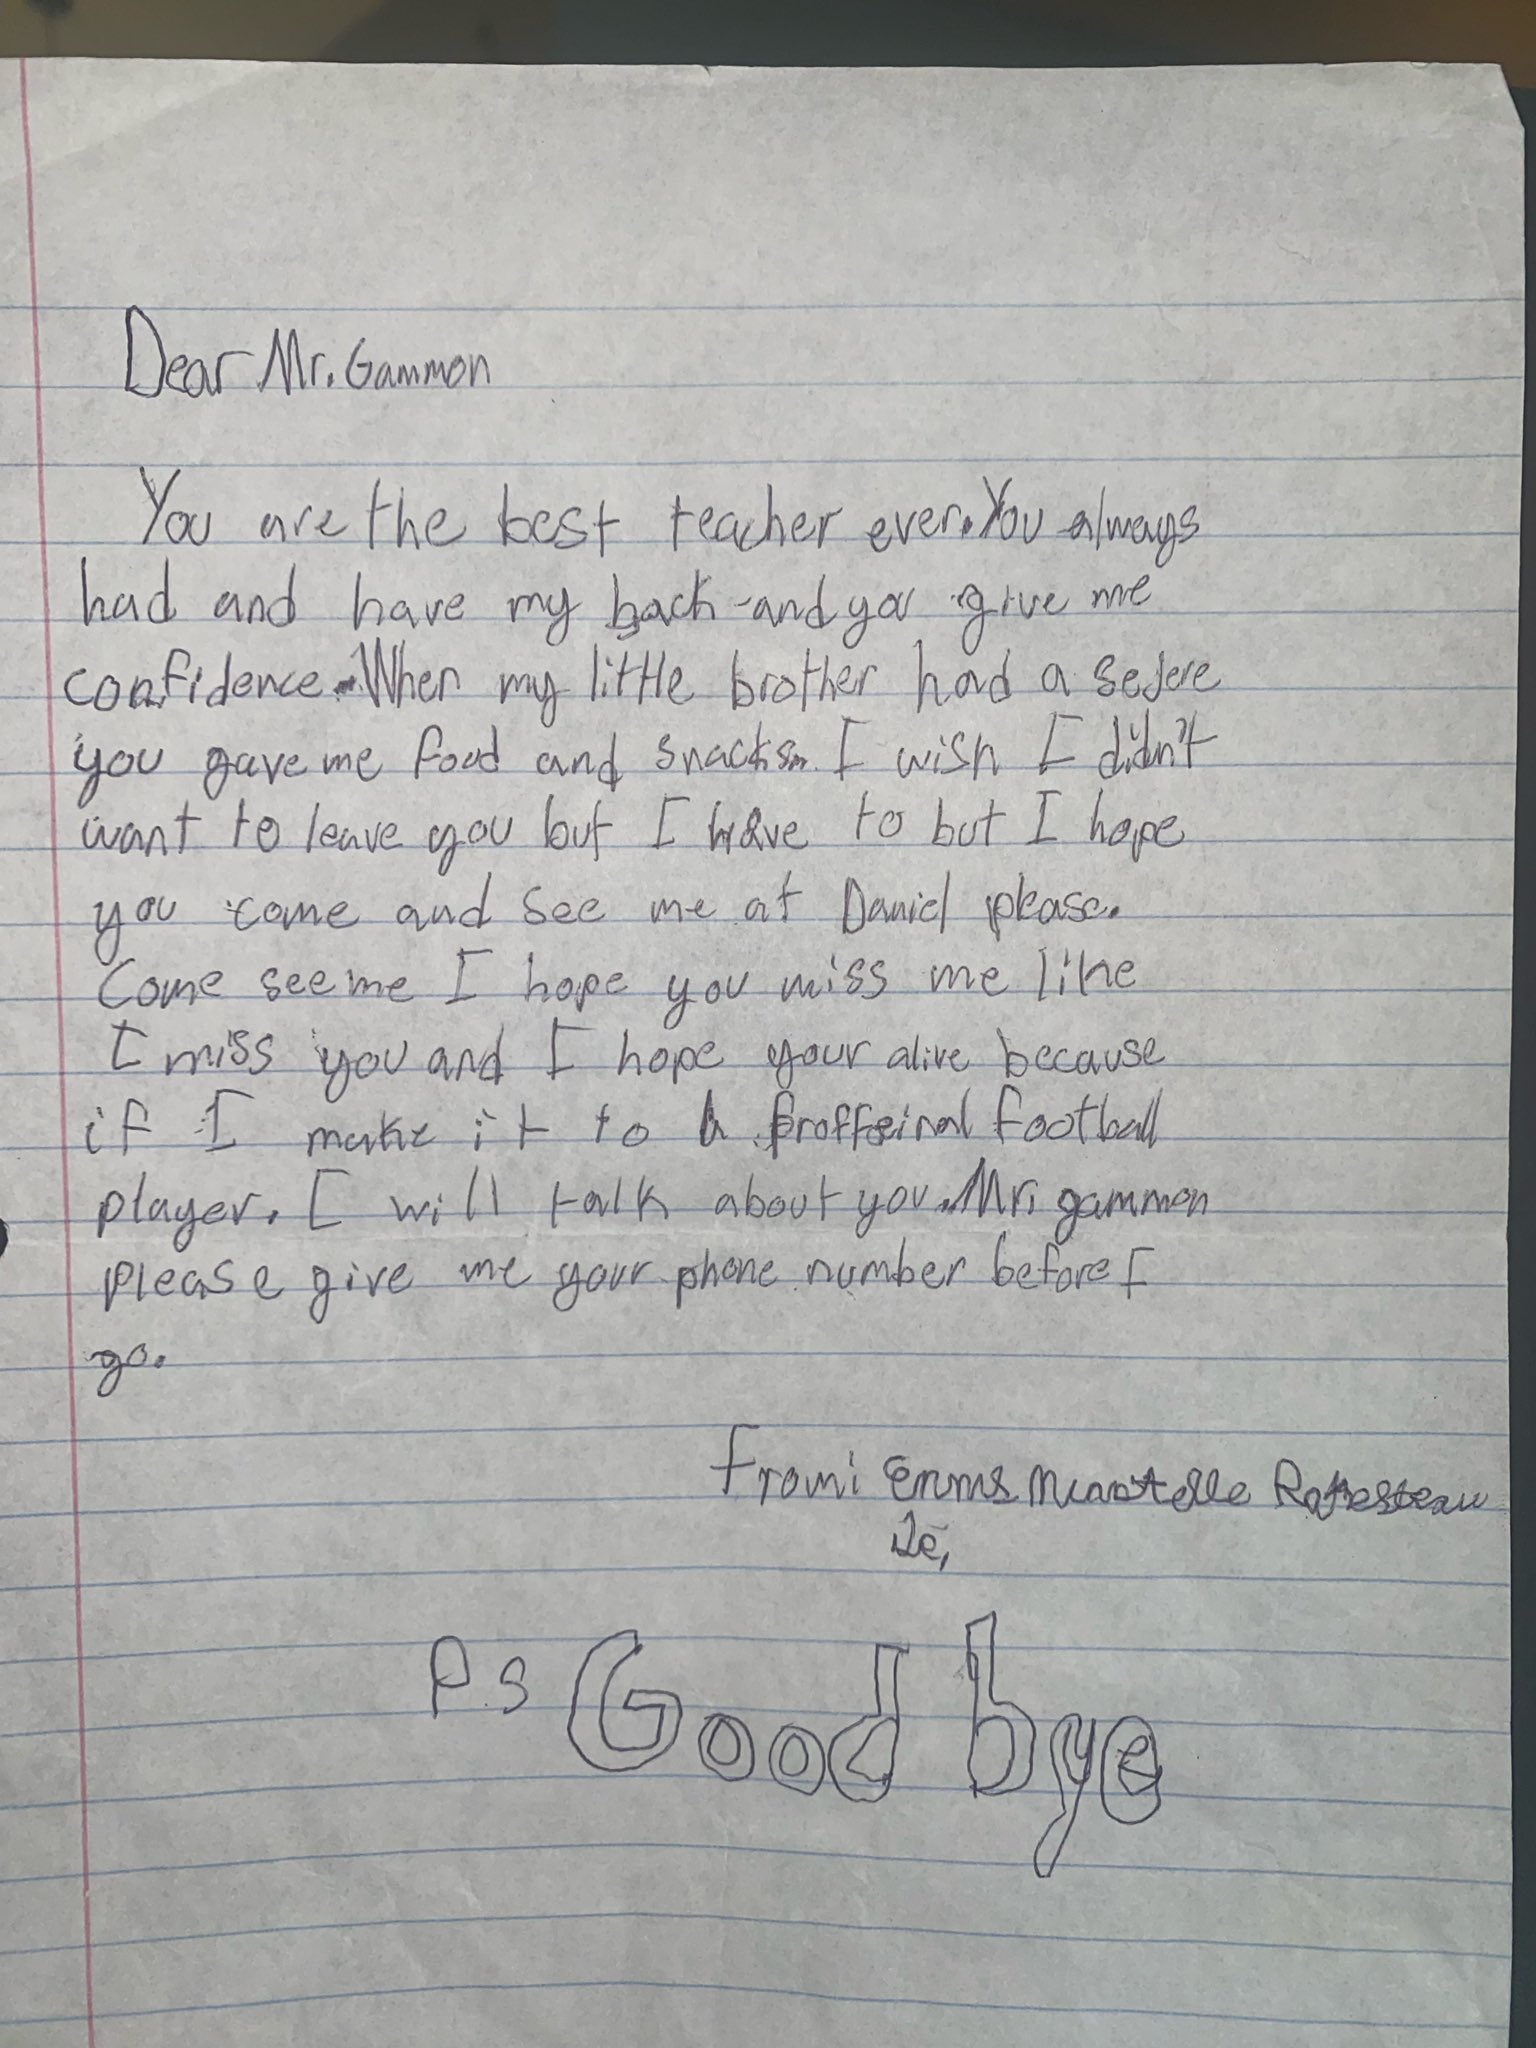 Dear Mr. Gammon
You are the best teacher ever. You always
had and have my back and you give me
confidence. When my little brother had a sejere
you gave me food and snacks. I wish I didn't
want to leave you but I have to but I hope
you come and see me at Daniel please.
Come see me I hope you miss me like
I miss you and I hope your alive because
if I make it to a proffeinal football
player. I will talk about you. Mr. gammon
please give me your phone number before I
go.
From:
P.S Good bye